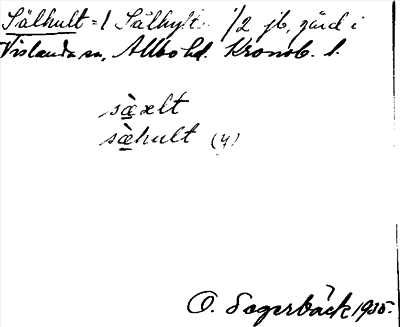 Sälhult = / Sälhylt 1/2 jb, gård i
Vislanda sn, Allbo hd. Kronob. l.
sæ̀xlt
sæ̀hult (y)
O. Sagerbäck 1935.